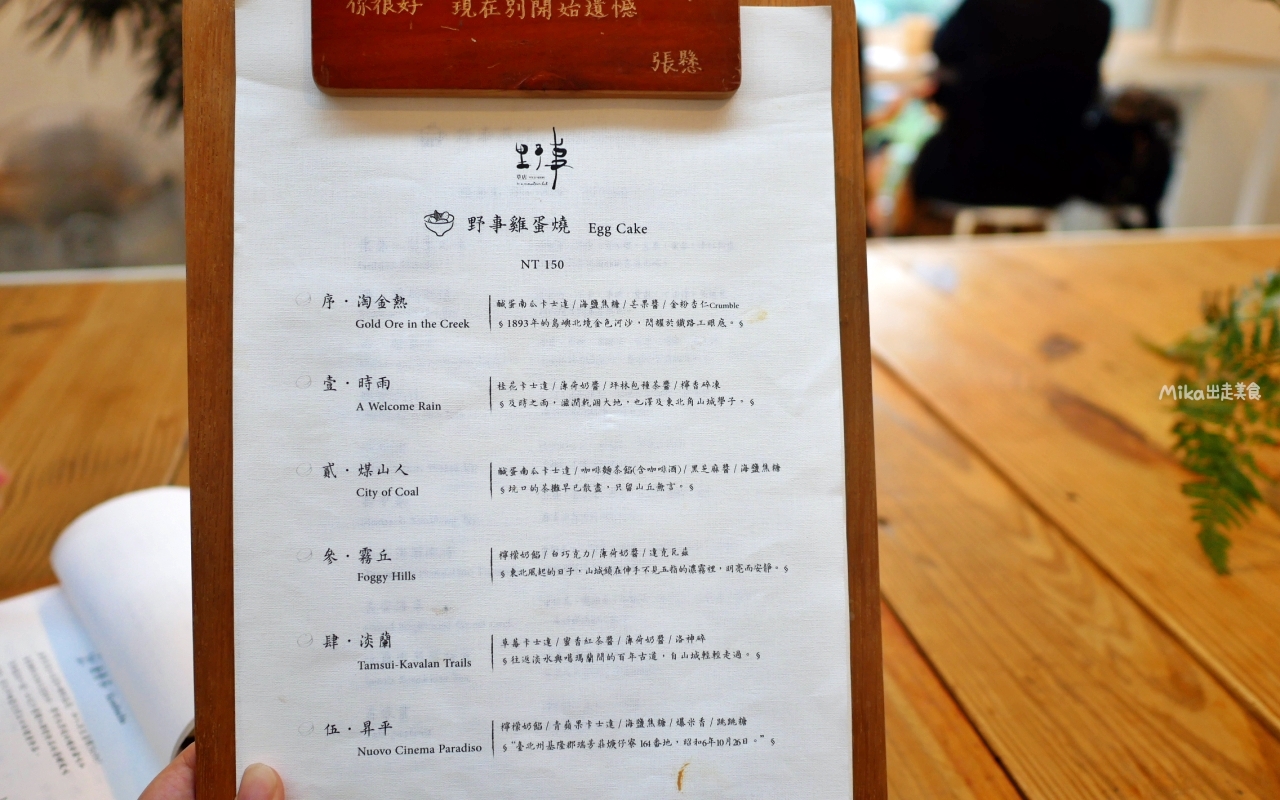 你很好 現在別開始遺憾
張懸
野事
草店
野事雞蛋燒 Egg Cake
NT 150
序・淘金熱
Gold Ore in the Creek
鹹蛋南瓜卡士達 / 海鹽焦糖 / 芒果醬 / 金粉杏仁Crumble
§ 1893年的島嶼北境金色河沙，閃耀於鐵路工眼底。§
壹・時雨
A Welcome Rain
桂花卡士達 / 薄荷奶醬 / 坪林包種茶醬 / 檸香碎凍
§ 及時之雨，滋潤乾涸大地，也澤及東北角山城學子。§
貳・煤山人
City of Coal
鹹蛋南瓜卡士達 / 咖啡麵茶餡(含咖啡酒) / 黑芝麻醬 / 海鹽焦糖
§ 坑口的茶攤早已散盡，只留山丘無言。§
參・霧丘
Foggy Hills
檸檬奶餡 / 白巧克力 / 薄荷奶醬 / 達克瓦茲
§ 東北風起的日子，山城繞在伸手不見五指的濃霧裡，明亮而安靜。§
肆・淡蘭
Tamsui-Kavalan Trails
草莓卡士達 / 蜜香紅茶醬 / 薄荷奶醬 / 洛神碎
§ 往返淡水與噶瑪蘭間的百年古道，自山城輕輕走過。§
伍・昇平
Nuovo Cinema Paradiso
檸檬奶餡 / 青蘋果卡士達 / 海鹽焦糖 / 爆米香 / 跳跳糖
§ "臺北州基隆郡瑞芳庄獇仔寮 164番地，昭和6年10月26日。" §
Mika出走美食